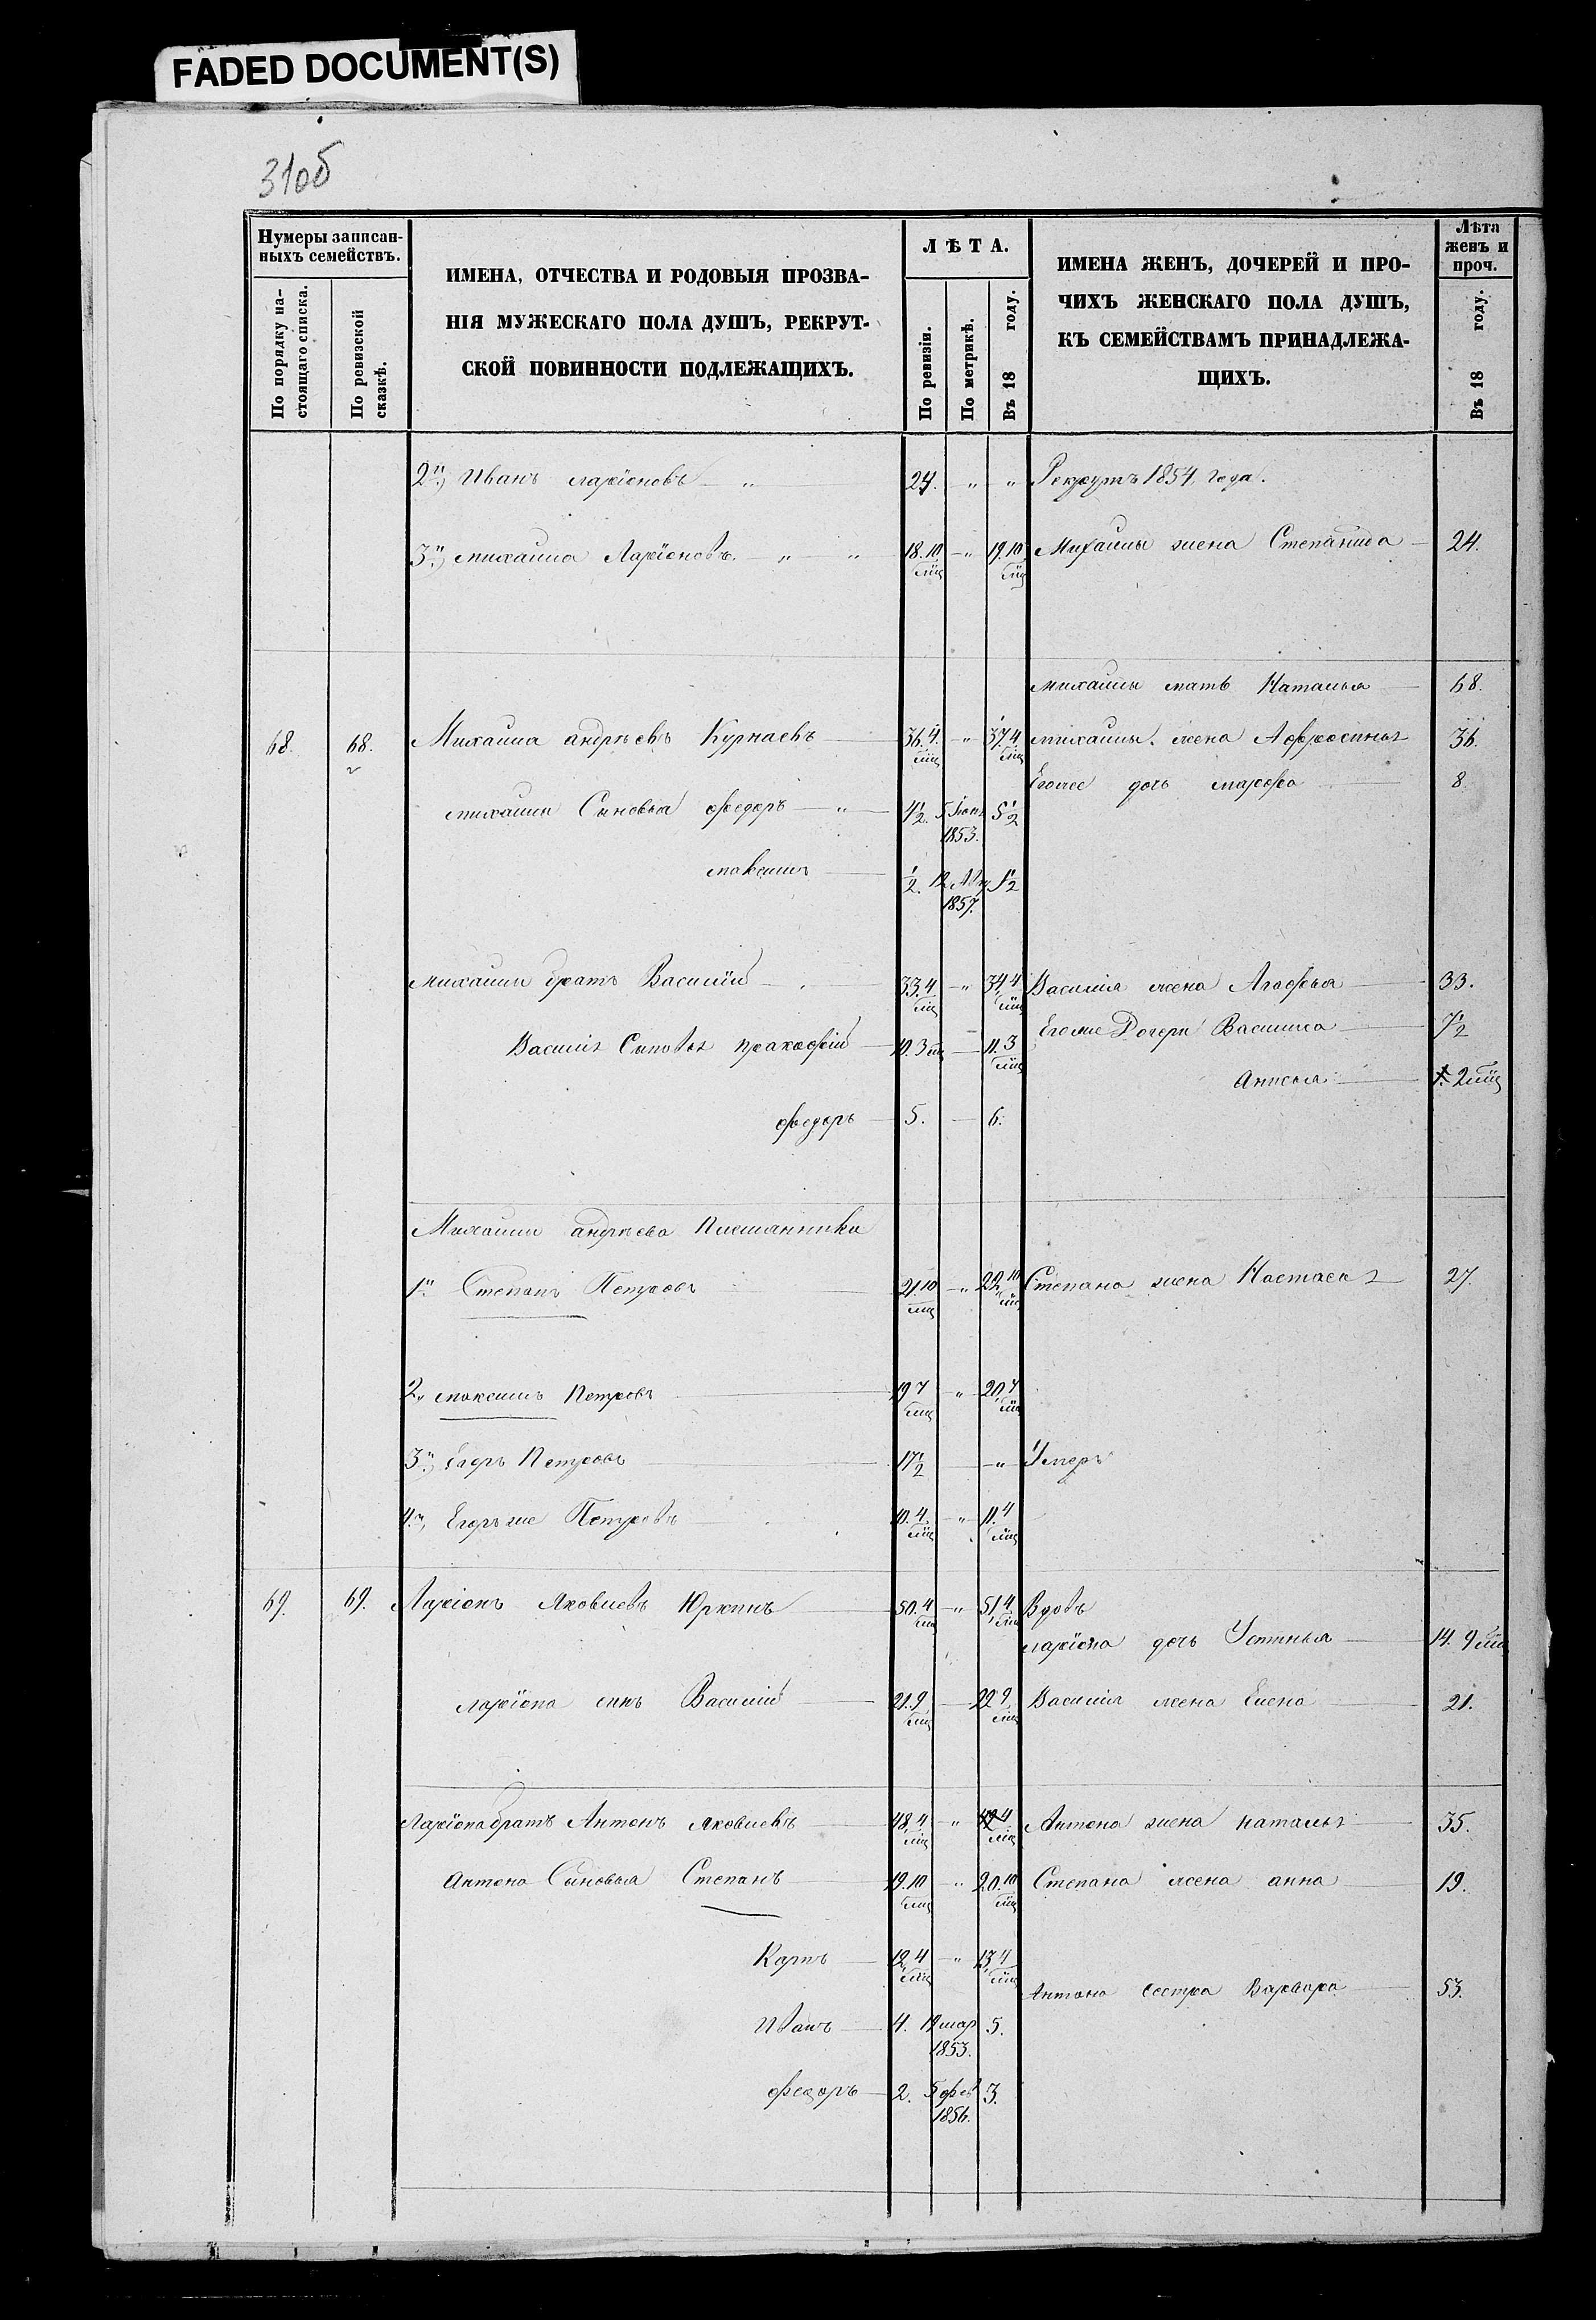 FADED DOCUMENT(S)
31об
Нумеры записан-
ныхъ семействъ.
По порядку на-
стоящаго списка.
По ревизской
сказкѣ.
ИМЕНА, ОТЧЕСТВА И РОДОВЫЯ ПРОЗВА-
НІЯ МУЖЕСКАГО ПОЛА ДУШЪ, РЕКРУТ-
СКОЙ ПОВИННОСТИ ПОДЛЕЖАЩИХЪ.
ЛѢТА.
По ревизіи.
По метрикѣ.
Въ 18 году.
ИМЕНА ЖЕНЪ, ДОЧЕРЕЙ И ПРО-
ЧИХЪ ЖЕНСКАГО ПОЛА ДУШЪ,
КЪ СЕМЕЙСТВАМЪ ПРИНАДЛЕЖА-
ЩИХЪ.
Лѣта
женъ и
проч.
Въ 18 году.
2й) Иванъ Ларіоновъ — " 24. " " Рекрутъ 1854 года.
3й) михаила Ларіоновъ. " — " 18.10 мцъ — " 19.10 мцъ Михаилы жена Степанида — 24.
михаилы мать Наталья — 68.
68. 68. Михаила андрѣевъ Курнаевъ — 36.4. мцъ — " 37.4 мцъ михаилы. жена Афросинья 36.
Егожее дочь марфа — 8.
михаилы Сыновья федоръ — " — 4½. 5 Іюня 1853. 5½
максимъ — ½. 12 Авгу 1857. 1½
михаилы братъ Василій — 33.4 мцъ — " 34.4 мцъ Василія жена Агафья — 33.
Василія Сыновья пракофій — 10.3 мц — 11.3 мцъ Егоже Дочери Василиса — 7½
анисья — 1. 2 мцъ
федоръ — 5. — 6.
Михаилы андрѣева Племянники
1й. Степанъ Петровъ 21.10 мцъ — " 22.10 мцъ Степана жена Настасья 27.
2й максимъ Петровъ — 19.7 мцъ " 20.7 мцъ
3й) Егоръ Петровъ — 17½ — " Умеръ
4й, Егоръ же Петровъ — 10.4. мцъ — " 11.4 мцъ
69. 69. Ларіонъ Яковлевъ Юркинъ — 50.4 мцъ — " 51.4 мцъ Вдовъ
ларіона дочь Устинья — 14. 9 мцъ
ларіона сынъ Василій — 21.9 мцъ — 22.9 мцъ Василія жена Елена — 21.
Ларіона братъ Антонъ яковлевъ — 48.4 мцъ — " 49.4 мцъ Антона жена наталья — 35.
антона Сыновья Степанъ — 19.10 мцъ — " 20.10 мцъ Степана жена анна — 19.
Карпъ — 12.4 мцъ — " 13.4 мцъ
Антона сестра Варвара — 53.
Иванъ — 4. 12 мар 1853. 5.
федоръ — 2. 5 фев 1856. 3.